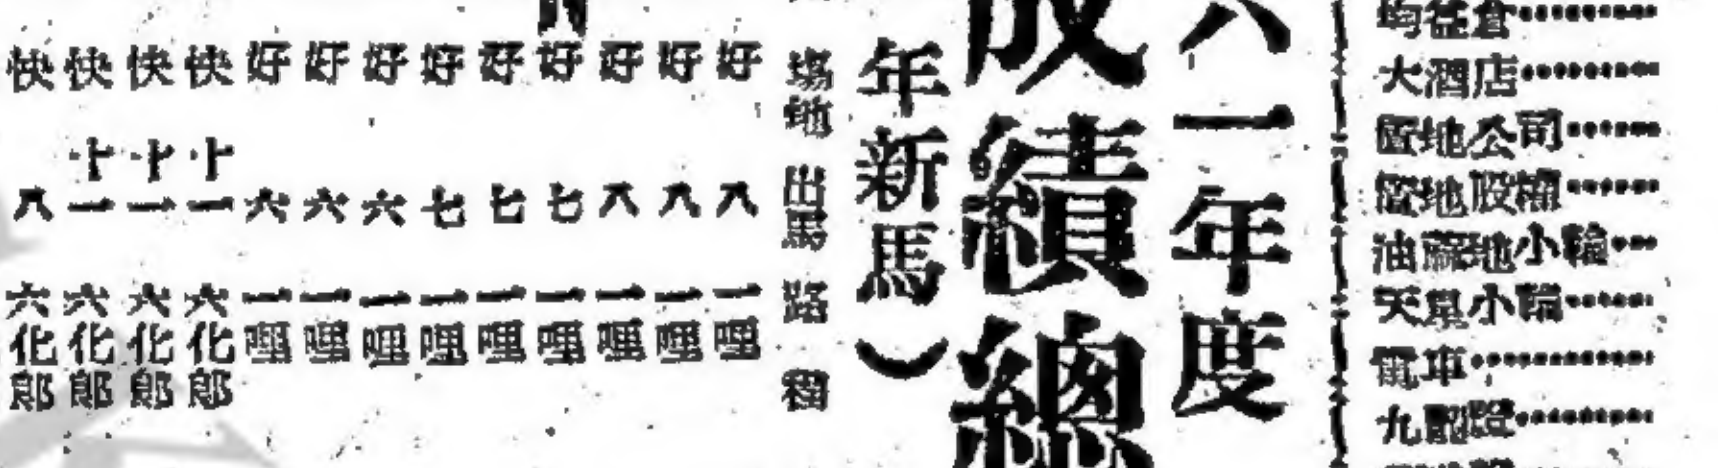 大酒店
置地公司
置地股權
油蔴地小輪
天星小輪
電車
九龍燈
六一年度
成績總
年新馬）
場地 出馬 路程
好 八 一哩
好 八 一哩
好 八 一哩
好 七 一哩
好 七 一哩
好 七 一哩
好 六 一哩
好 六 一哩
好 六 一哩
快 十一 六化郎
快 十一 六化郎
快 十一 六化郎
快 八 六化郎